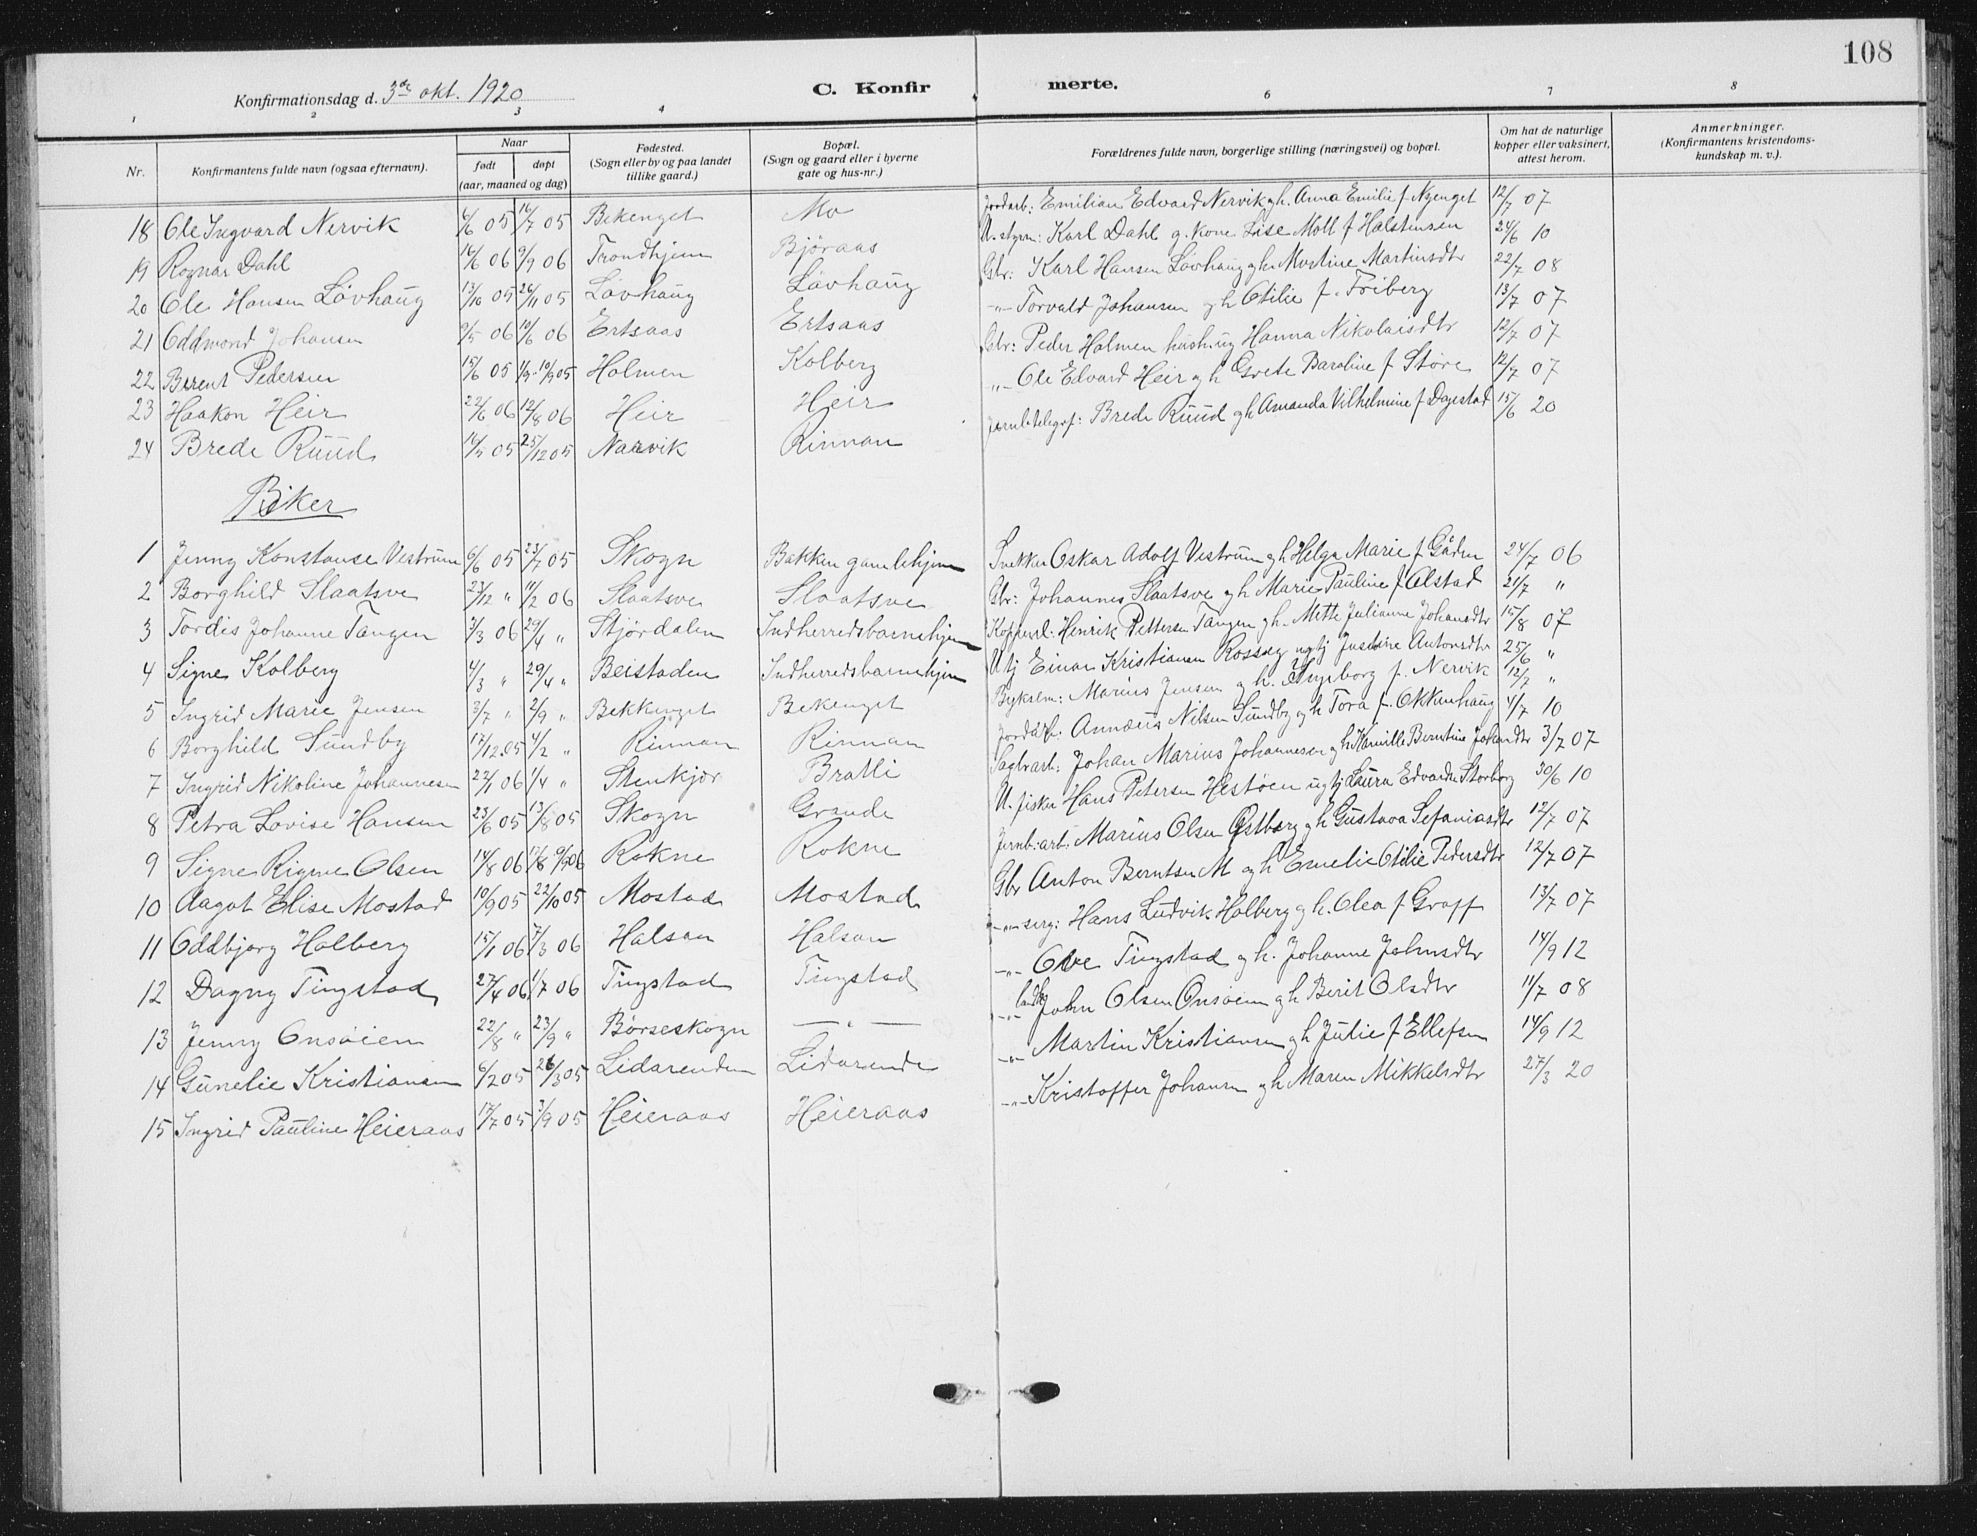 108
Konfirmationsdag d. 3de okt. 1920
C. Konfir merte.
1 2 3 4 6 7 8
Nr. Konfirmantens fulde navn (ogsaa efternavn). Naar født døpt (aar, maaned og dag) Fødested. (Sogn eller by og paa landet tillike gaard.) Bopæl. (Sogn og gaard eller i byerne gate og hus-nr.) Forældrenes fulde navn, borgerlige stilling (næringsvei) og bopæl. Om hat de naturlige kopper eller vaksinert, attest herom. Anmerkninger. (Konfirmantens kristendomskundskap m. v.).
18 Ole Ingvard Nervik 4/6 05 16/7 05 Bekenget Mo Jordarb: Emilian Edvard Nervik g h. Anna Emilie f. Nyenget 12/7 07
19 Ragnar Dahl 06 9/9 06 Trondhjem Bjøraas U. styrm: Karl Dahl g. kone Lise Moll f Halstensen 24/6 10
20 Ole Hansen Løvhaug 13/10 05 26/11 05 Løvhaug Løvhaug Gbr: Karl Hansen Løvhaug g h Martinsdtr 22/7 08
21 Oddmond Johansen 9/5 06 10/6 06 Ertsaas Ertsaas -"- Torvald Johansen g h Otilie f. Friberg 13/7 07
22 Berent Pedersen 15/6 05 05 Holmen Kolberg Gbr: Peder Holmen hushug Hanna Nikolaisdtr 12/7 07
23 Haakon Heir 22/6 06 12/8 06 Heir Heir -"- Ole Edvard Heir g h Grete Baroline f Støre 12/7 07
24 Brede Ruud 05 25/12 05 Narvik Rinnan Jernb.telegraf: Brede Ruud g h Amanda Vilhelmine f Dagestad 15/6 20
Piker
1 Jenny Konstanse Vestrum 6/6 05 23/7 05 Skogn Bakken gamlehjem Snekker Oskar Adolf Vestrum g h Helga Marie f Gåden 24/7 06
2 Borghild Slaatsve 23/12 " 11/2 06 Slaatsve Slaatsve Gbr: Johannes Slaatsve g h Marie Pauline f Alstad 21/7 "
3 Tordis Johanne Tangen 3/3 06 29/4 " Stjørdalen Indherredsbarnehjem Henrik Pettersen Tangen g h. Mette Julianne Johansdtr 15/8 07
4 Signe Kolberg 4/3 " 29/4 " Beistaden Indherredsbarnehjem U tj Einar Kristiansen ug tj Justine Antonsdtr 25/6 "
5 Ingrid Marie Jensen 3/7 " 2/9 " Bekkenget Bekenget Marius Jensen g h. Ingeborg f. Nervik 12/7 "
6 Borghild Sundby 17/12 05 4/2 " Rinnan Rinnan Jordarb: Annæus Nilsen Sundby g h Tora f. Okkenhaug 4/7 10
7 Ingrid Nikoline Johannesen 22/1 06 1/4 " Stenkjør Bratli Sagbrarb: Johan Marius Johannesen g h Kamille Berntine Johansdtr 3/7 07
8 Petra Lovise Hansen 23/6 05 13/8 05 Skogn Grande U. fisker Hans Petersen Hestøen ug tj Laura Edvarda Storborg 30/6 10
9 Signe Rigmor Olsen 14/8 06 06 Rokne Rokne Jernb. arb: Marius Olsen Østberg g h Gustava Sefaniasdtr 12/7 07
10 Aagot Elise Mostad 10/9 05 22/10 05 Mostad Mostad Gbr Anton Berntsen M g h Emelie Otilie Pedersdtr 12/7 07
11 Oddbjørg Halberg 15/1 06 7/3 06 Halsan Halsan -"- serg: Hans Ludvik Halberg g h. Olea f Graff 13/7 07
12 Dagny Tingstad 27/4 06 1/7 06 Tingstad Tingstad -"- Ole Tingstad g h. Johanne Johnsdtr 14/9 12
13 Jenny Onsøien 22/8 " 23/9 " Børseskogn — " — -"- John Olsen Onsøien g h Berit Olsdtr 11/7 08
14 Gunelie Kristiansen 6/2 05 26/3 05 Lidarenden Lidarende -"- Martin Kristiansen g h Julie f Ellefsen 14/9 12
15 Ingrid Pauline Heieraas 17/7 05 3/9 05 Heieraas Heieraas -"- Kristoffer Johansen g h Maren Mikkelsdtr 27/3 20